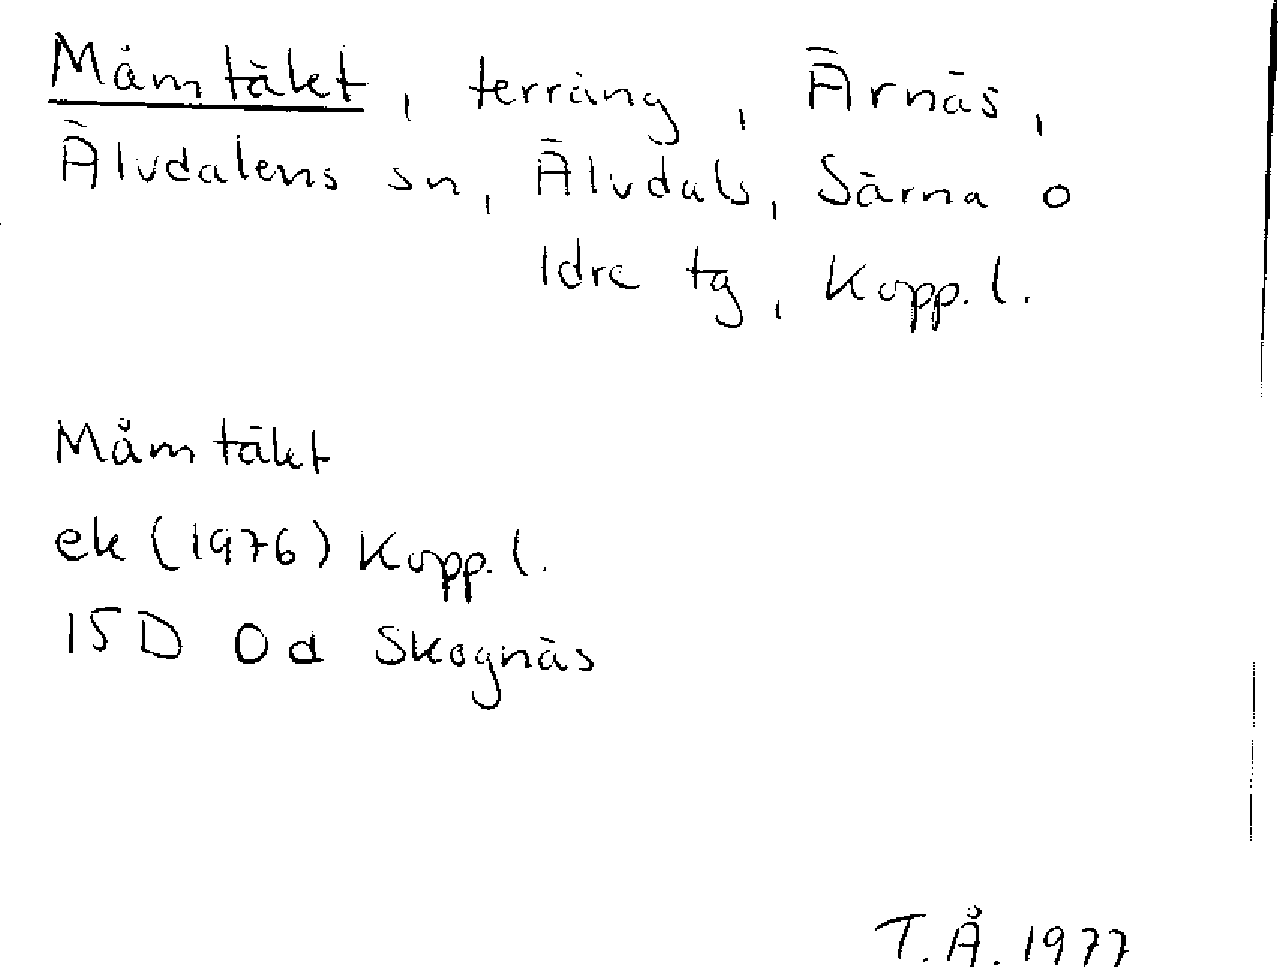 Måmtäkt, terräng, Ärnäs,
Älvdalens sn, Älvdals, Särna o
Idre tg, Kopp. l.
Måmtäkt
ek (1976) Kopp. l.
15D 0d Skognäs
T. Å. 1977